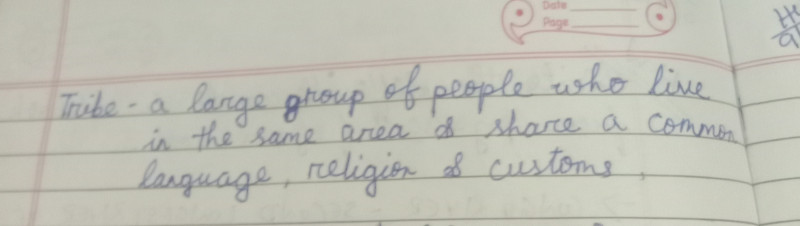 Date
Page
Tribe - a large group of people who live
in the same area & share a common
language, religion & customs.